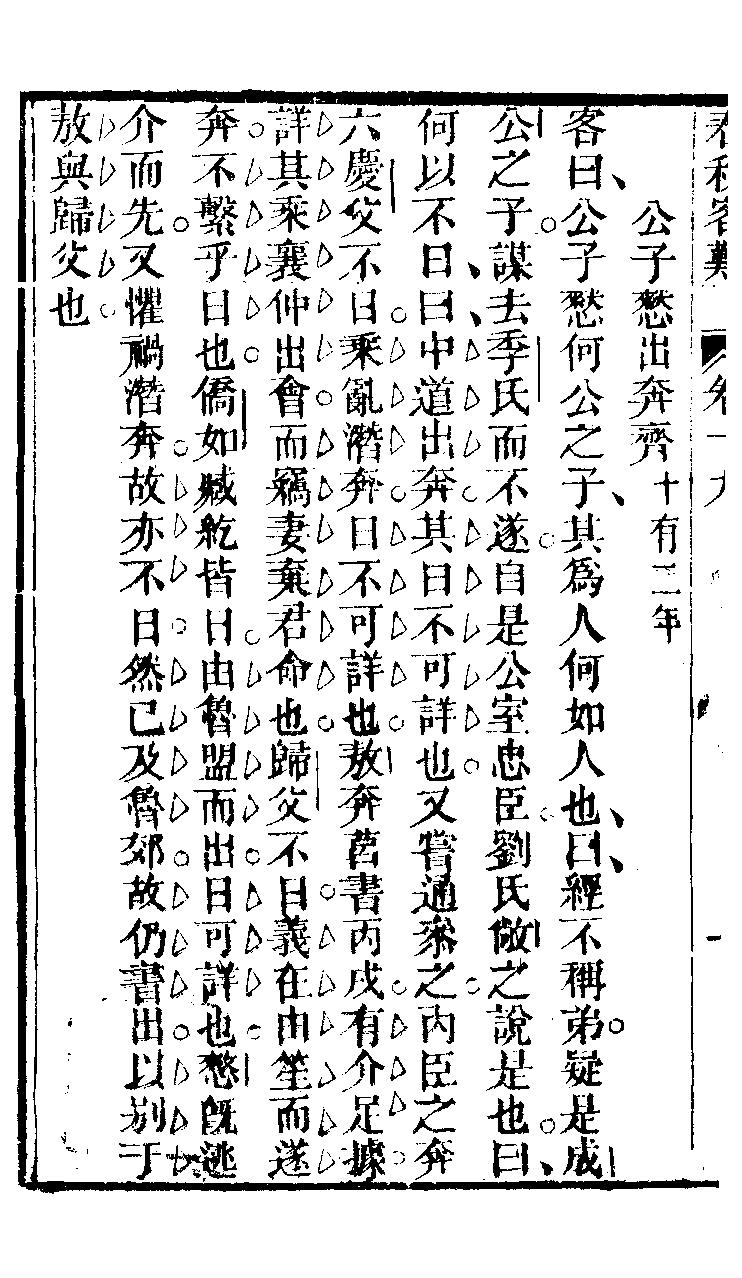 春秋客難 卷十九
公子憖出奔齊十有二年
客曰公子憖何公之子其爲人何如人也曰經不稱弟疑是成
公之子謀去季氏而不遂自是公室忠臣劉氏敞之說是也曰
何以不日曰中道出奔其日不可詳也又嘗通叅之内臣之奔
六慶父不日乘亂潛奔日不可詳也敖奔莒書丙戌有介足據
詳其乘襄仲出會而竊妻棄君命也歸父不日義在由笙而遂
奔不繫乎日也僑如臧紇皆日由魯盟而出日可詳也憖旣逃
介而先又懼禍潛奔故亦不日然已及魯郊故仍書出以别于
敖與歸父也